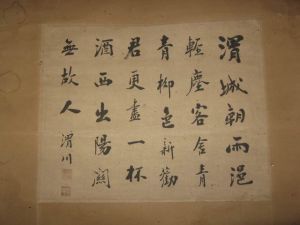 渭城朝雨浥
輕塵客舍青
青柳色新勸
君更盡一杯
酒西出陽關
無故人 渭川